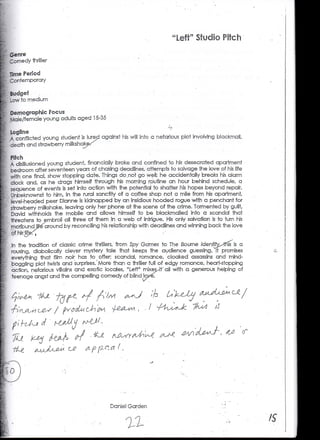 "Left" Studio Pitch
Genre
Comedy thriller
Time Period
Contemporary
Budget
Low to medium
Demographic Focus
Male/female young adults aged 15-35
Logline
A conflicted young student is lured against his will into a nefarious plot involving blackmail,
death and strawberry milkshake
Pitch
A disillusioned young student, financially broke and confined to his desecrated apartment
bedroom after seventeen years of chasing deadlines, attempts to salvage the love of his life
with one final, show stopping date. Things do not go well; he accidentally breaks his alarm
clock and, as he drags himself through his morning routine an hour behind schedule, a
sequence of events is set into action with the potential to shatter his hopes beyond repair.
Unbeknownst to him, in the rural sanctity of a coffee shop not a mile from his apartment,
level-headed peer Dianne is kidnapped by an insidious hooded rogue with a penchant for
strawberry milkshake, leaving only her phone at the scene of the crime. Tormented by guilt,
David withholds the mobile and allows himself to be blackmailed into a scandal that
threatens to embroil all three of them in a web of intrigue. His only salvation is to turn his
moribund life around by reconciling his relationship with deadlines and winning back the love
of his life.
In the tradition of classic crime thrillers, from Spy Games to The Bourne Identity, this is a
rousing, diabolically clever mystery tale that keeps the audience guessing. It promises
everything that film noir has to offer: scandal, romance, cloaked assassins and mind-
boggling plot twists and surprises. More than a thriller full of edgy romance, heart-stopping
action, nefarious villains and exotic locales, "Left" mixes it all with a generous helping of
teenage angst and the compelling comedy of blind love.
Given the type of film and its likely audience/
financier/production team, I think this is
pitched really well.
The key beats of the narrative are evident, as is
the audience appeal.
10
Daniel Garden
22
15